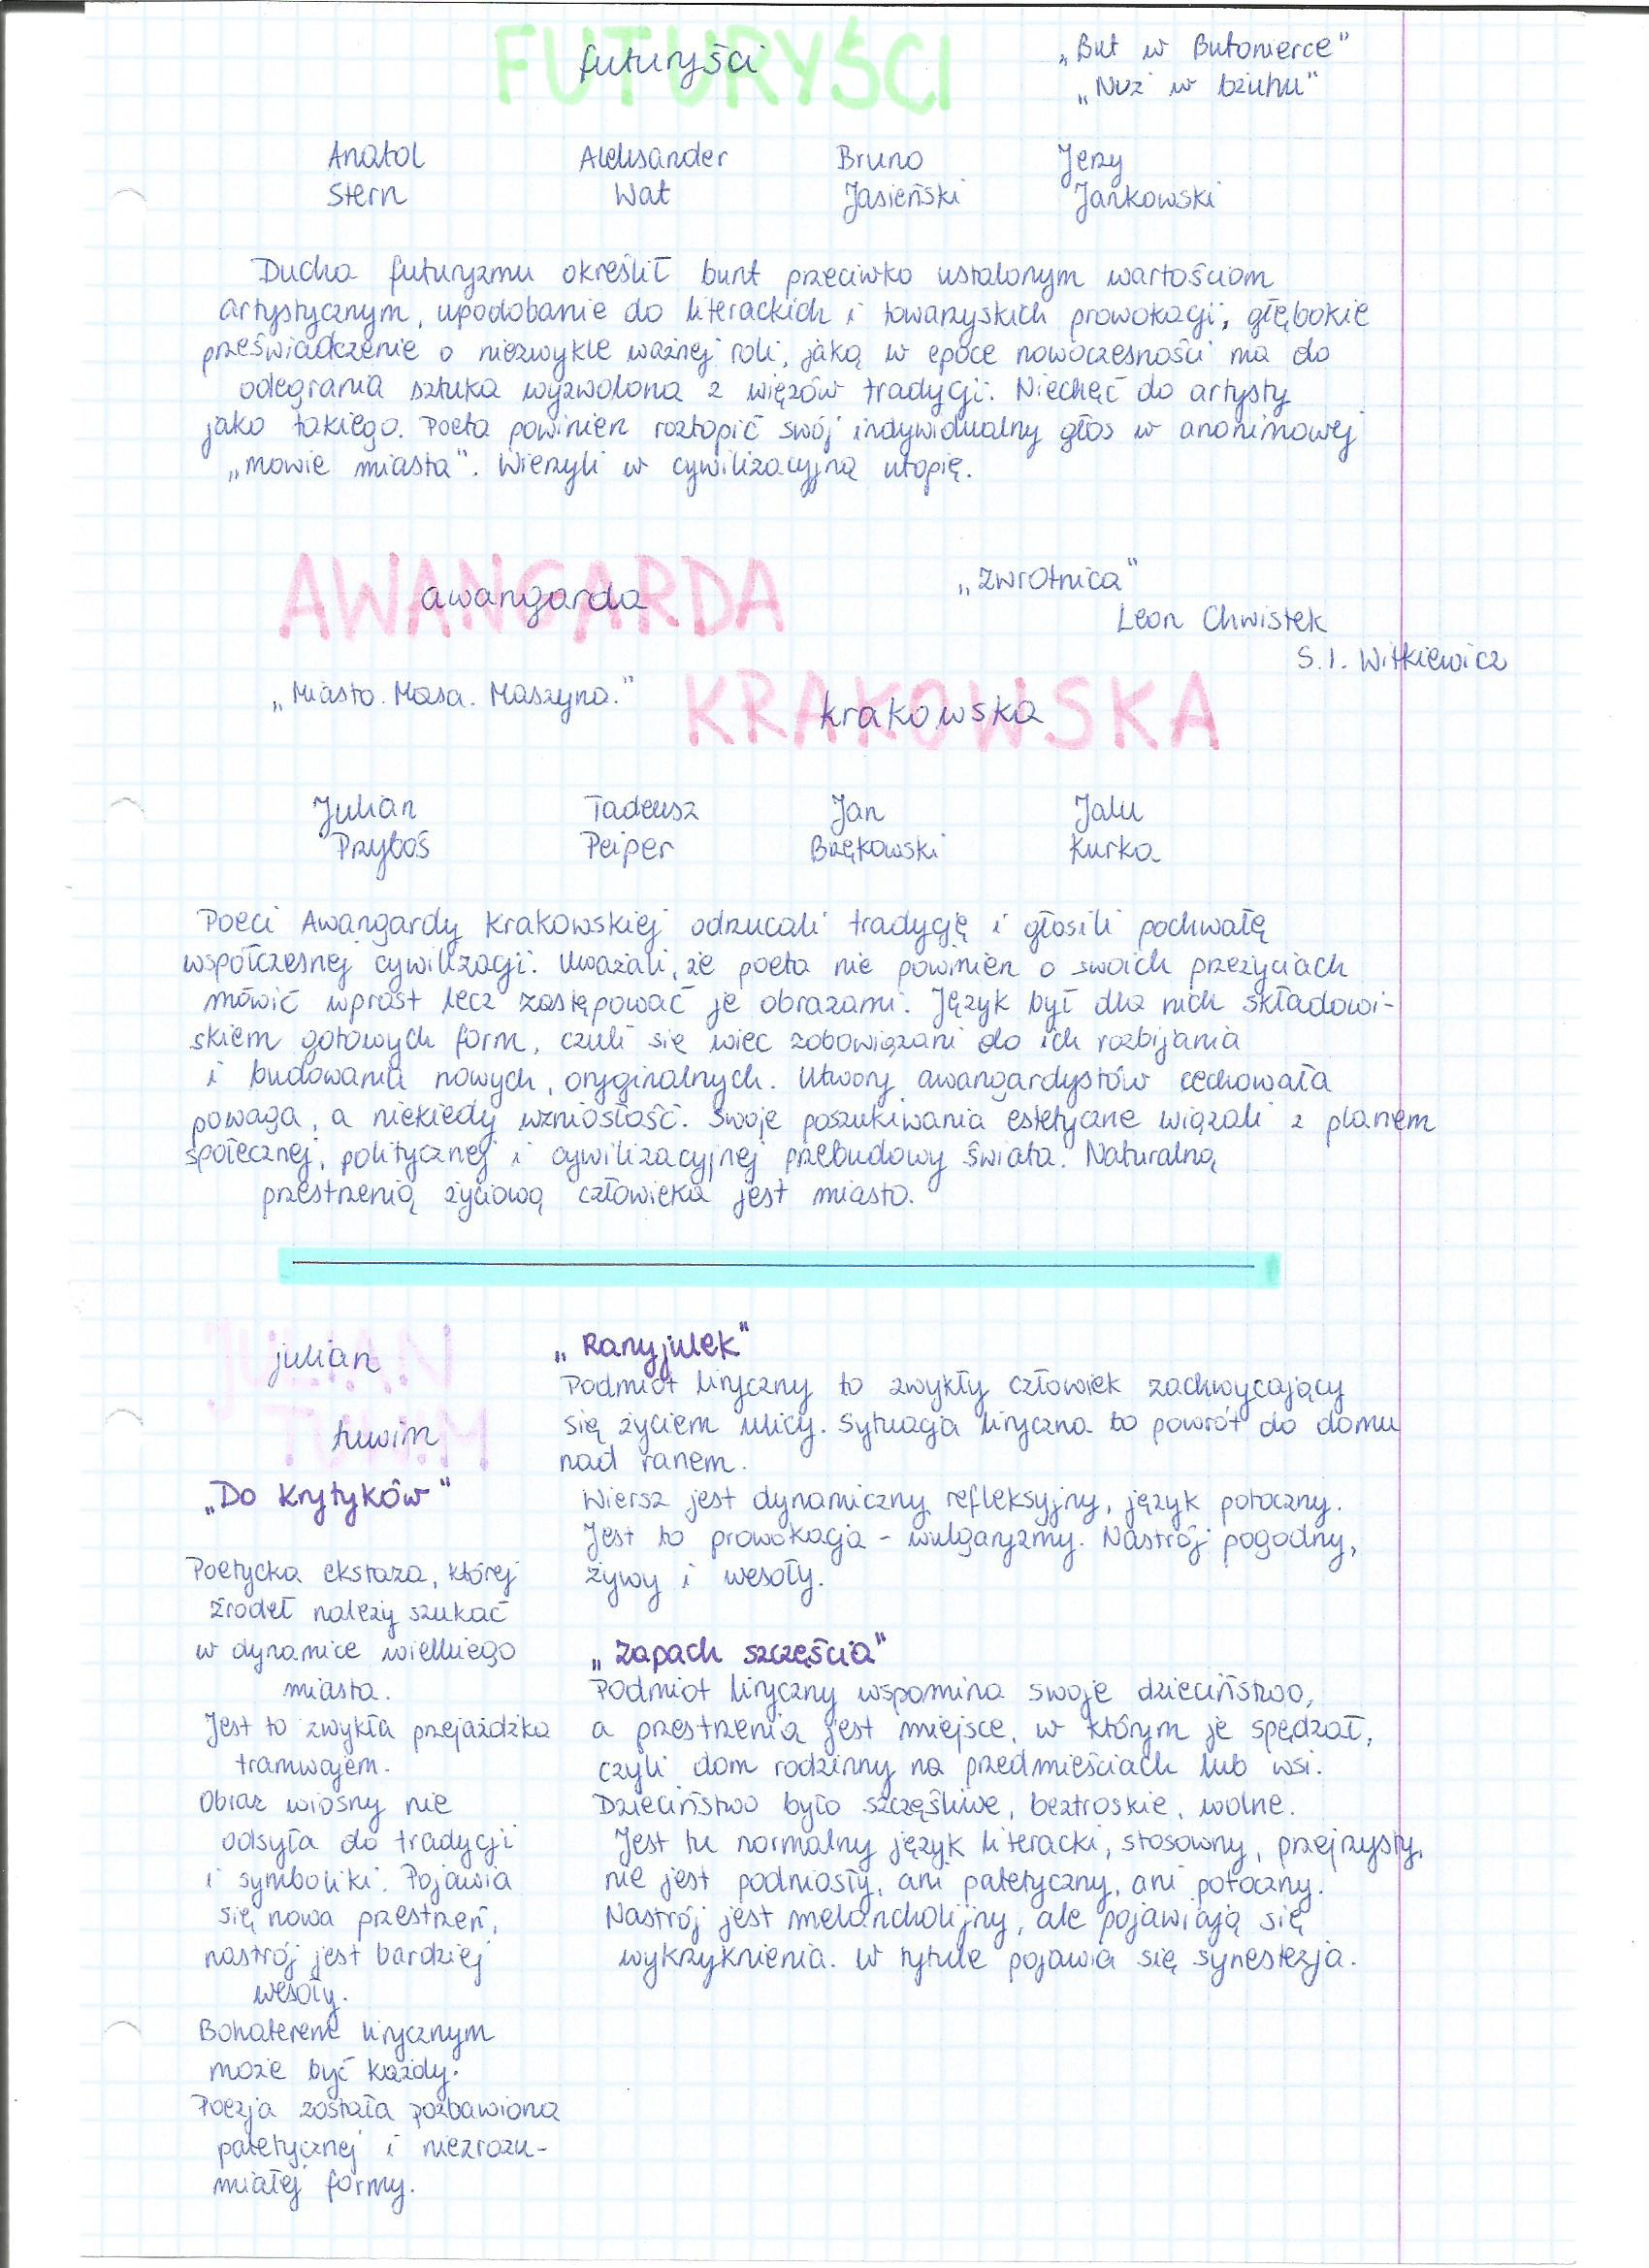 FUTURYŚCI
futuryści
„But w Butonierce"
„Nuż w bżuhu"
Anatol Stern
Aleksander Wat
Bruno Jasieński
Jerzy Jankowski
Ducha futuryzmu określił bunt przeciwko ustalonym wartościom
artystycznym, upodobanie do literackich i towarzyskich prowokacji, głębokie
przeświadczenie o niezwykle ważnej roli, jaką w epoce nowoczesności ma do
odegrania sztuka wyzwolona z więzów tradycji. Niechęć do artysty
jako takiego. Poeta powinien roztopić swój indywidualny głos w anonimowej
„mowie miasta". Wierzyli w cywilizacyjną utopię.
AWANGARDA
awangarda
„Zwrotnica"
Leon Chwistek
S.I. Witkiewicz
„Miasto. Masa. Maszyna."
KRAKOWSKA
krakowska
Julian Przyboś
Tadeusz Peiper
Jan Brzękowski
Jalu Kurka
Poeci Awangardy Krakowskiej odrzucali tradycję i głosili pochwałę
współczesnej cywilizacji. Uważali, że poeta nie powinien o swoich przeżyciach
mówić wprost lecz zastępować je obrazami. Język był dla nich składowi-
skiem gotowych form, czuli się wiec zobowiązani do ich rozbijania
i budowania nowych, oryginalnych. Utwory awangardystów cechowała
powaga, a niekiedy wzniosłość. Swoje poszukiwania estetyczne wiązali z planem
społecznej, politycznej i cywilizacyjnej przebudowy świata. Naturalną
przestrzenią życiową człowieka jest miasto.
JULIAN
julian
TUWIM
tuwim
„Do Krytyków"
Poetycka ekstaza, której
źródeł należy szukać
w dynamice wielkiego
miasta.
Jest to zwykła przejażdżka
tramwajem.
Obraz wiosny nie
odsyła do tradycji
i symboliki. Pojawia
się nowa przestrzeń,
nastrój jest bardziej
wesoły.
Bohaterem lirycznym
może być każdy.
Poezja została pozbawiona
patetycznej i niezrozu-
miałej formy.
„Ranyjulek"
Podmiot liryczny to zwykły człowiek zachwycający
się życiem ulicy. Sytuacja liryczna to powrót do domu
nad ranem.
Wiersz jest dynamiczny, refleksyjny, język potoczny.
Jest to prowokacja - wulgaryzmy. Nastrój pogodny,
żywy i wesoły.
„Zapach szczęścia"
Podmiot liryczny wspomina swoje dzieciństwo,
a przestrzenią jest miejsce, w którym je spędzał,
czyli dom rodzinny na przedmieściach lub wsi.
Dzieciństwo było szczęśliwe, beztroskie, wolne.
Jest tu normalny język literacki, stosowny, przejrzysty,
nie jest podniosły, ani patetyczny, ani potoczny.
Nastrój jest melancholijny, ale pojawiają się
wykrzyknienia. W tytule pojawia się synestezja.